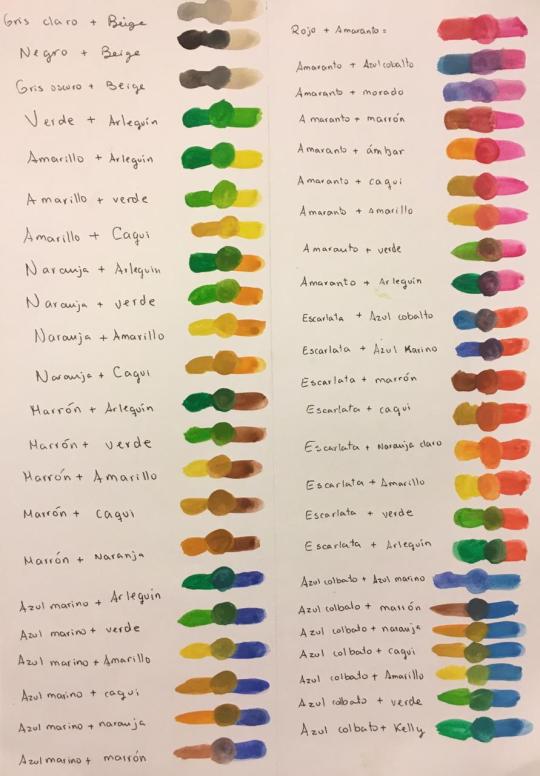 Gris claro + Beige
Negro + Beige
Gris oscuro + Beige
Verde + Arlequín
Amarillo + Arlequín
Amarillo + verde
Amarillo + Caqui
Naranja + Arlequín
Naranja + verde
Naranja + Amarillo
Naranja + Caqui
Marrón + Arlequín
Marrón + verde
Marrón + Amarillo
Marrón + caqui
Marrón + Naranja
Azul marino + Arlequin
Azul marino + verde
Azul marino + Amarillo
Azul marino + caqui
Azul marino + naranja
Azul marino + marrón
Rojo + Amaranto =
Amaranto + Azul cobalto
Amaranto + morado
Amaranto + marrón
Amaranto + ámbar
Amaranto + caqui
Amaranto + Amarillo
Amaranto + verde
Amaranto + Arlequín
Escarlata + Azul cobalto
Escarlata + Azul Marino
Escarlata + marrón
Escarlata + caqui
Escarlata + Naranja claro
Escarlata + Amarillo
Escarlata + verde
Escarlata + Arlequín
Azul colbato + Azul marino
Azul colbato + marrón
Azul colbato + naranja
Azul colbato + caqui
Azul colbato + Amarillo
Azul colbato + verde
Azul colbato + Kelly